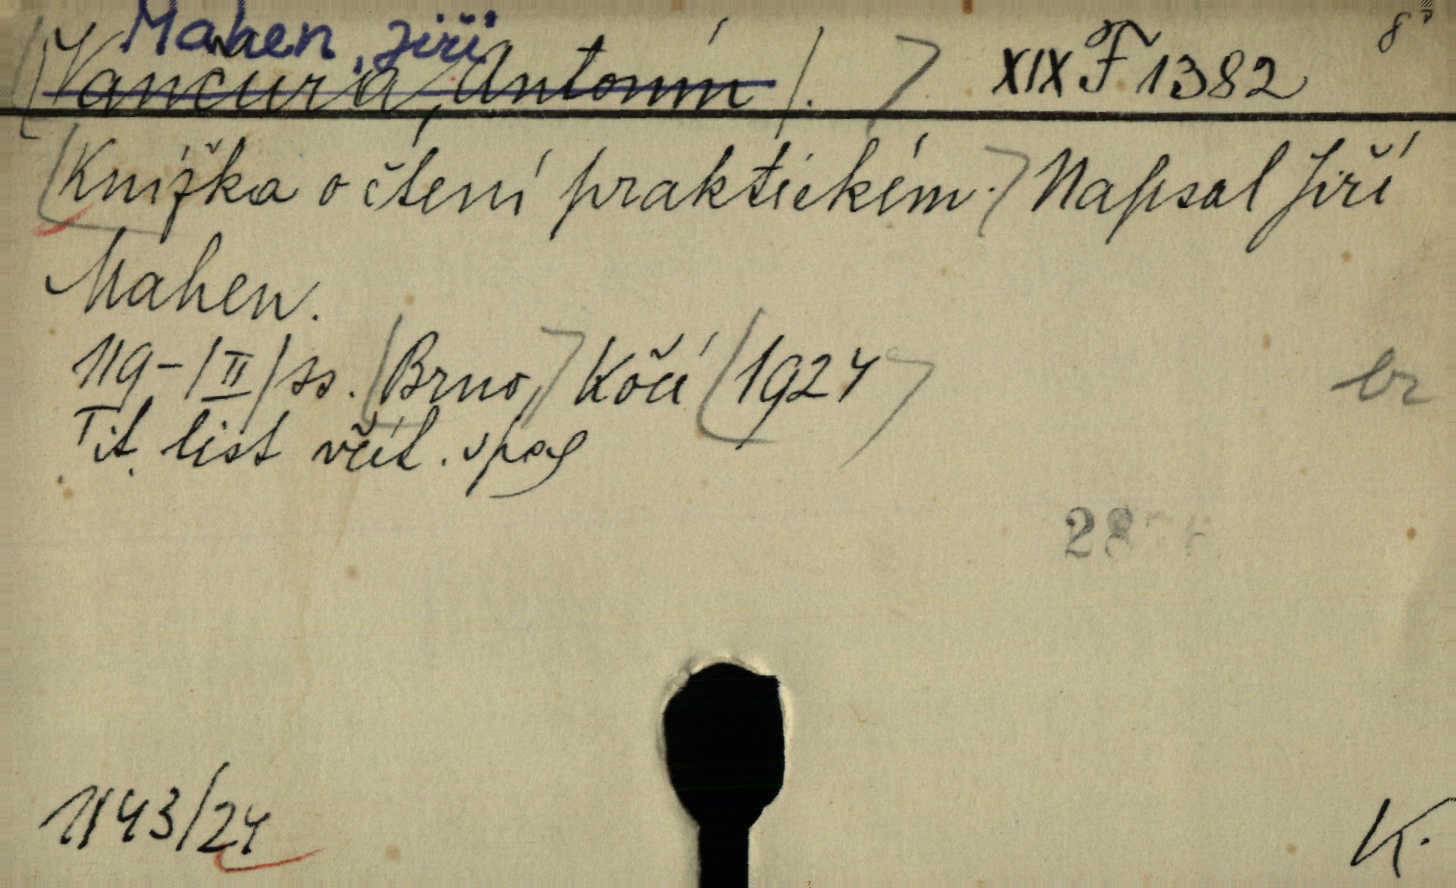 Mahen, Jiří
(Vančura, Antonín). XIX F 1382 8°
Knížka o čtení praktickém. Napsal Jiří
Mahen.
119-/II/ ss. Brno, Kočí 1924
br
Tit. list včít. v pag
28
1143/24
K.